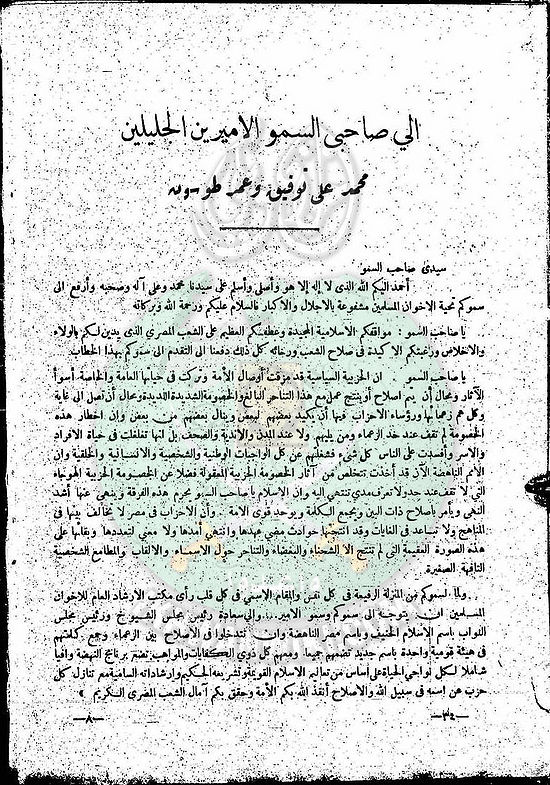 الي صاحبي السمو الاميرين الجليلين
محمد علي توفيق وعمر طوسون
سيدي صاحب السمو
أحمد اليكم الله الذي لا إله إلا هو وأصلي وأسلم على سيدنا محمد وعلى آله وصحبه وأرفع الى
سموكم تحية الاخوان المسلمين مشفوعة بالاجلال والاكبار فالسلام عليكم ورحمة الله وبركاته
يا صاحب السمو : مواقفكم الاسلامية المجيدة وعطفكم العظيم على الشعب المصري الذي يدين لكم بالولاء
والاخلاص ورغبتكم الاكيدة في صلاح الشعب ورخائه كل ذلك دفعنا الى التقدم الى سموكم بهذا الخطاب
يا صاحب السمو . ان الحزبية السياسية قد مزقت أوصال الأمة وتركت في حياتها العامة والخاصة أسوأ
الآثار ومحال أن يتم اصلاح أو ينتج عمل مع هذا التناحر البالغ والخصومة الشديدة اللديدة ومحال أن تصل الى غاية
وكل هم زعمائها ورؤساء الاحزاب فيها أن يكيد بعضهم لبعض وينال بعضهم من بعض وإن اخطار هذه
الخصومة لم تقف عند حد الزعماء ومن يليهم ولا عند المدن والأندية والصحف بل انها تغلغلت في حياة الافراد
والاسر وأفسدت على الناس كل شيء فشغلتهم عن كل الواجبات الوطنية والشخصية والانسانية والخلقية وإن
الامم الناهضة الآن قد أخذت تتخلص من آثار الخصومة الحزبية المعقولة فضلا عن الخصومة الحزبية الهوجاء
التي لا تقف عند حد ولا تعرف مدى تنتهي اليه وإن الاسلام يا صاحب السمو يحرم هذه الفرقة وينهى عنها أشد
النهي ويأمر باصلاح ذات البين ويجمع الكلمة ويوحد قوى الامة . وأن الاحزاب في مصر لا تخالف بينها في
المناهج ولا تباعد في الغايات وقد انتجتها حوادث مضى عهدها وانتهى أمدها ولا معنى لتعددها وبقائها على
هذه الصورة العقيمة التي لم تنتج الا الشحناء والبغضاء والتناحر حول الاسماء والالقاب والمطامع الشخصية
التافهة الصغيرة
ولما لسموكم من المنزلة الرفيعة في كل نفس والمقام الاسمى في كل قلب رأى مكتب الارشاد العام للاخوان
المسلمين ان يتوجه الى سموكم وسمو الامير والي سعادة رئيس مجلس الشيوخ ورئيس مجلس
النواب باسم الاسلام الحنيف وباسم مصر الناهضة وان تتدخلوا في الاصلاح بين الزعماء وجمع كلمتهم
في هيئة قومية واحدة باسم جديد تضمهم جميعا ومعهم كل ذوي الكفايات والمواهب تضع برنامج النهضة وافيا
شاملا لكل نواحي الحياة على أساس من تعاليم الاسلام القويمة وتشريعه الحكيم وارشاداته السامية مع تنازل كل
حزب عن اسمه في سبيل الله والاصلاح أنقذ الله بكم الأمة وحقق بكم آمال الشعب المصري الكريم
—٣٤— —٨—